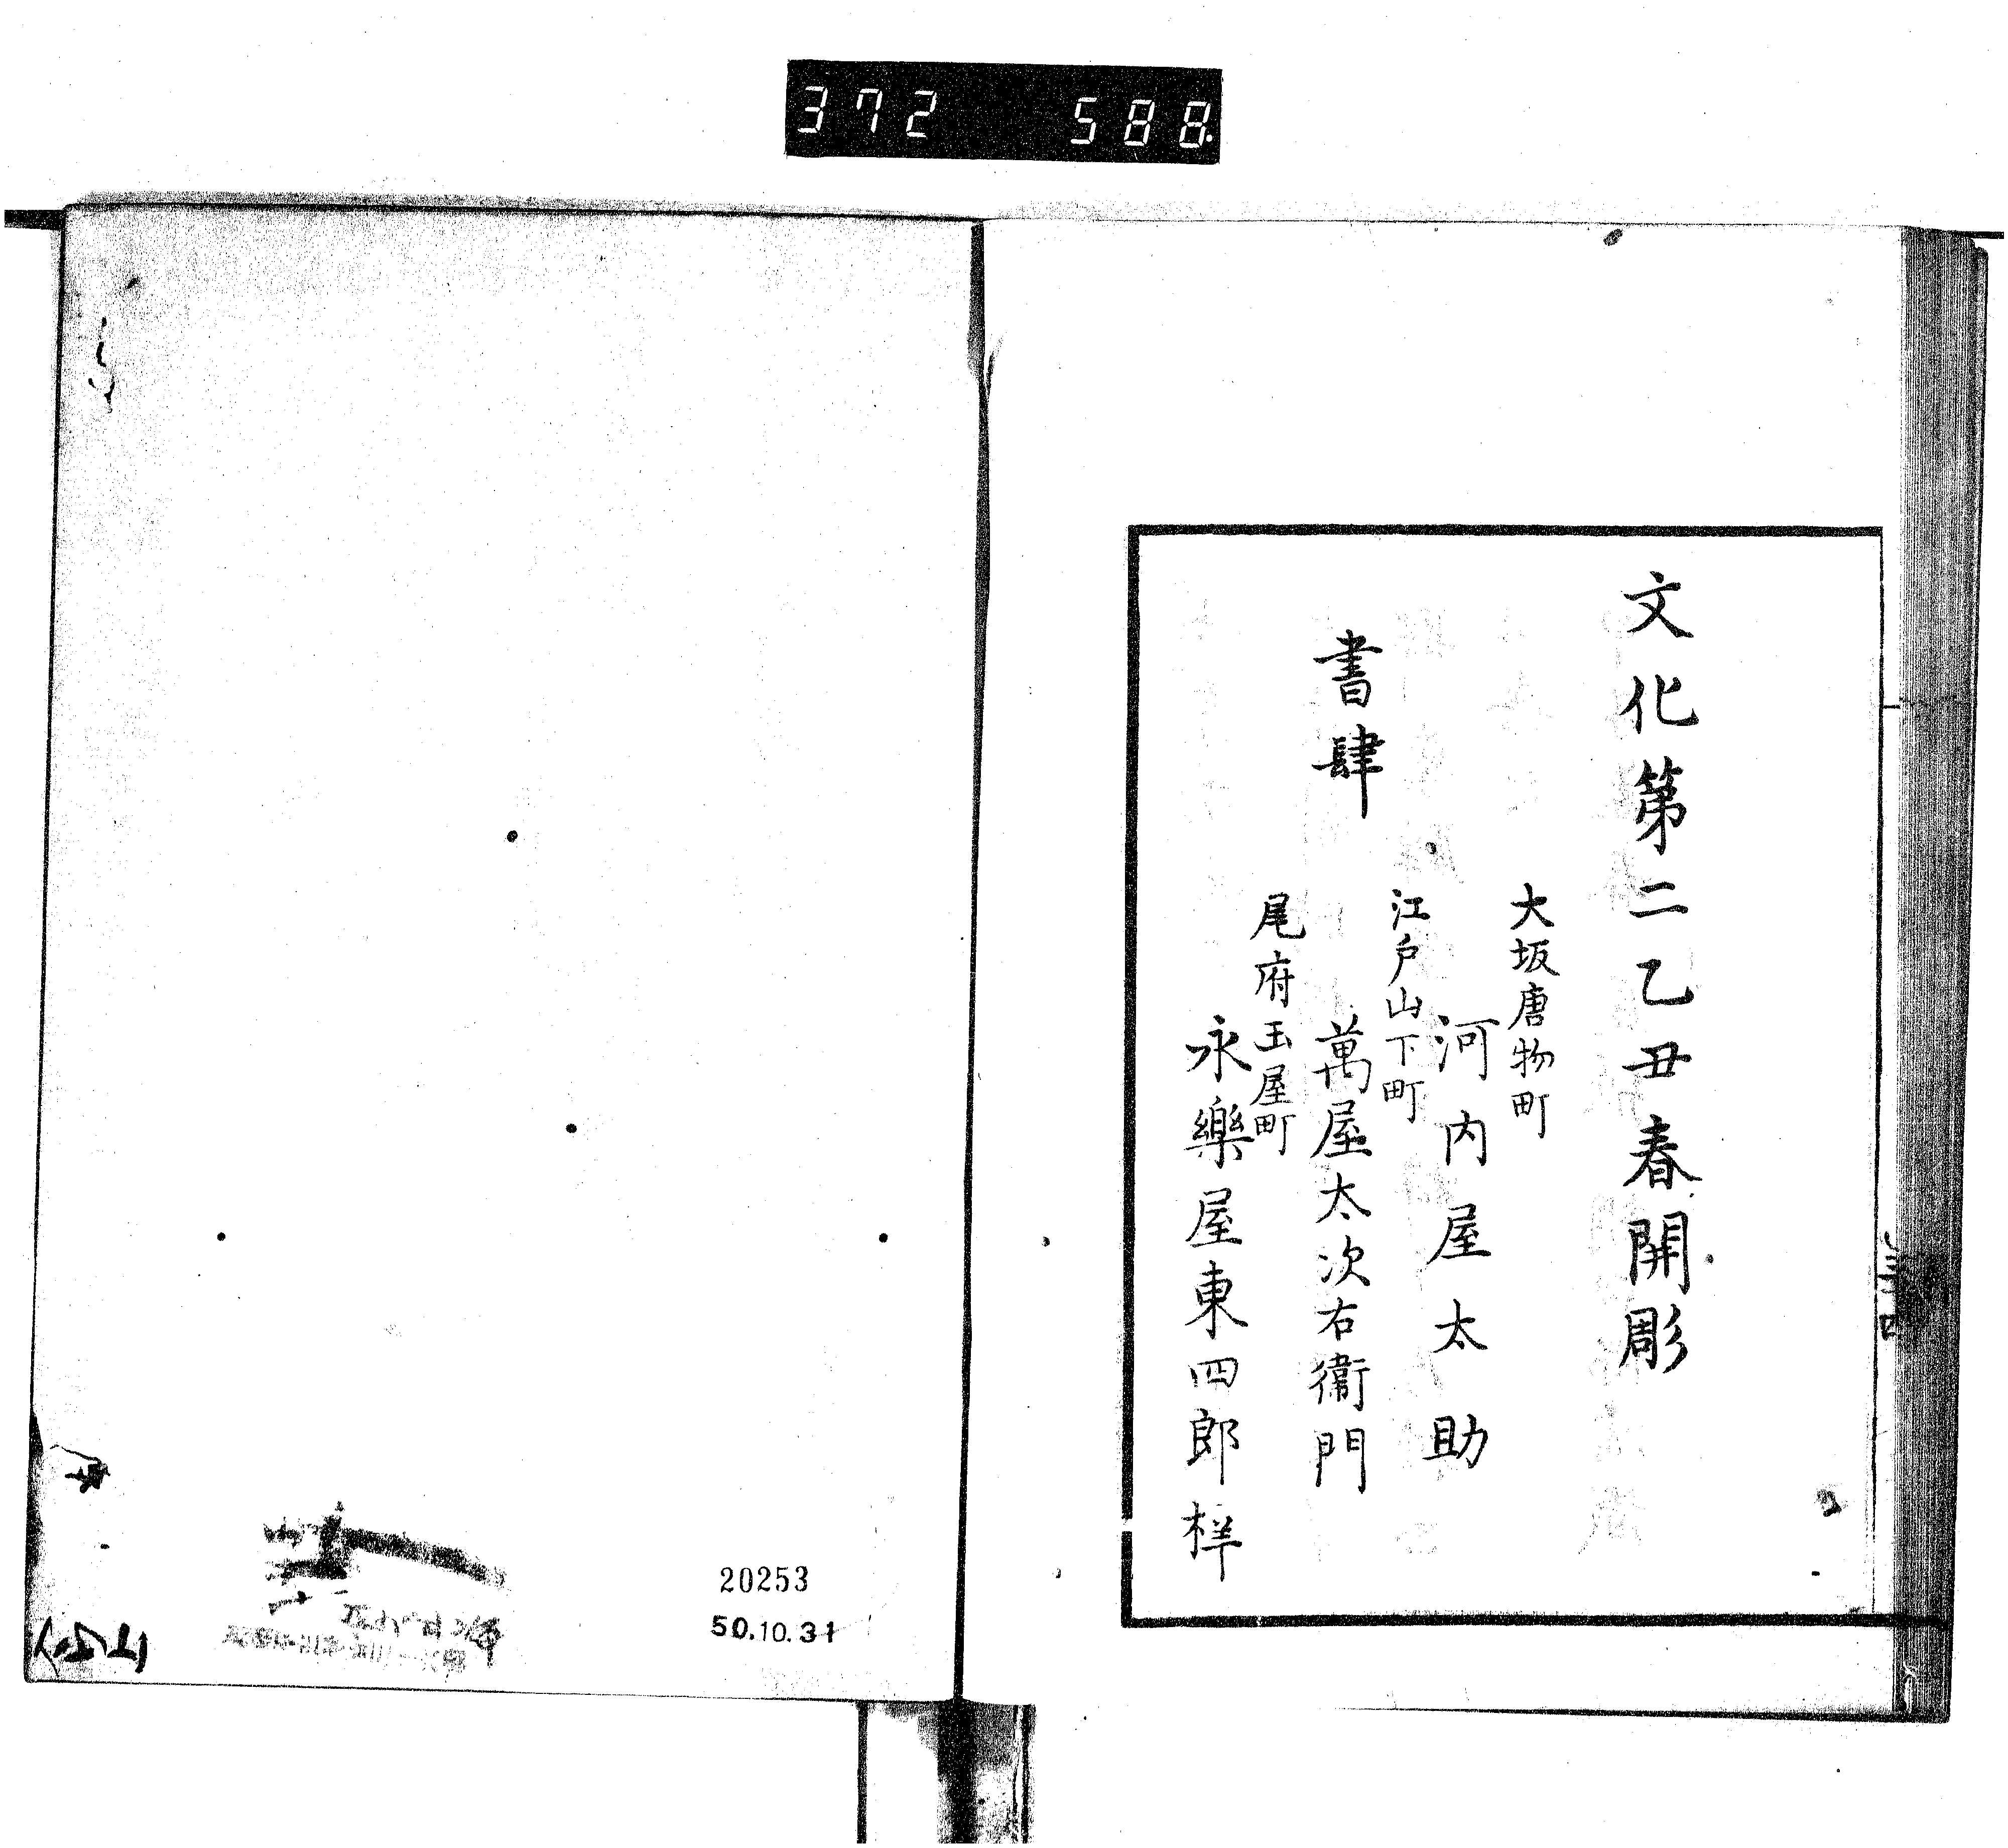 372 588
文化第二乙丑春開彫
大坂唐物町
河内屋太助
江戸山下町
書肆
萬屋太次右衞門
尾府玉屋町
永樂屋東四郎梓
20253
50.10.31